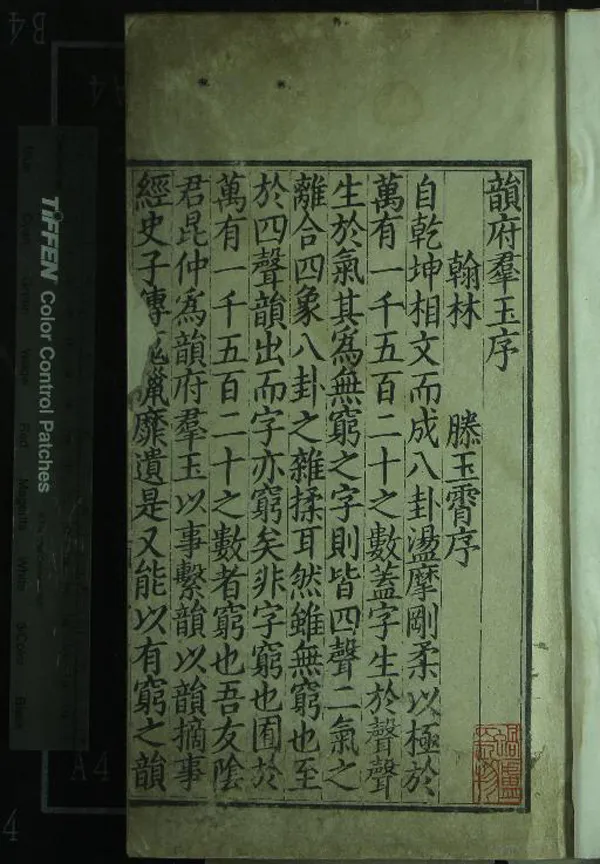 韻府羣玉序
翰林 滕玉霄序
自乾坤相文而成八卦盪摩剛柔以極於
萬有一千五百二十之數蓋字生於聲聲
生於氣其為無窮之字則皆四聲二氣之
離合四象八卦之雜揉耳然雖無窮也至
於四聲韻出而字亦窮矣非字窮也囿於
萬有一千五百二十之數者窮也吾友陰
君昆仲為韻府羣玉以事繫韻以韻摘事
經史子傳獵靡遺是又能以有窮之韻
TIFFEN Color Control Patches
B4
A4
A4
4